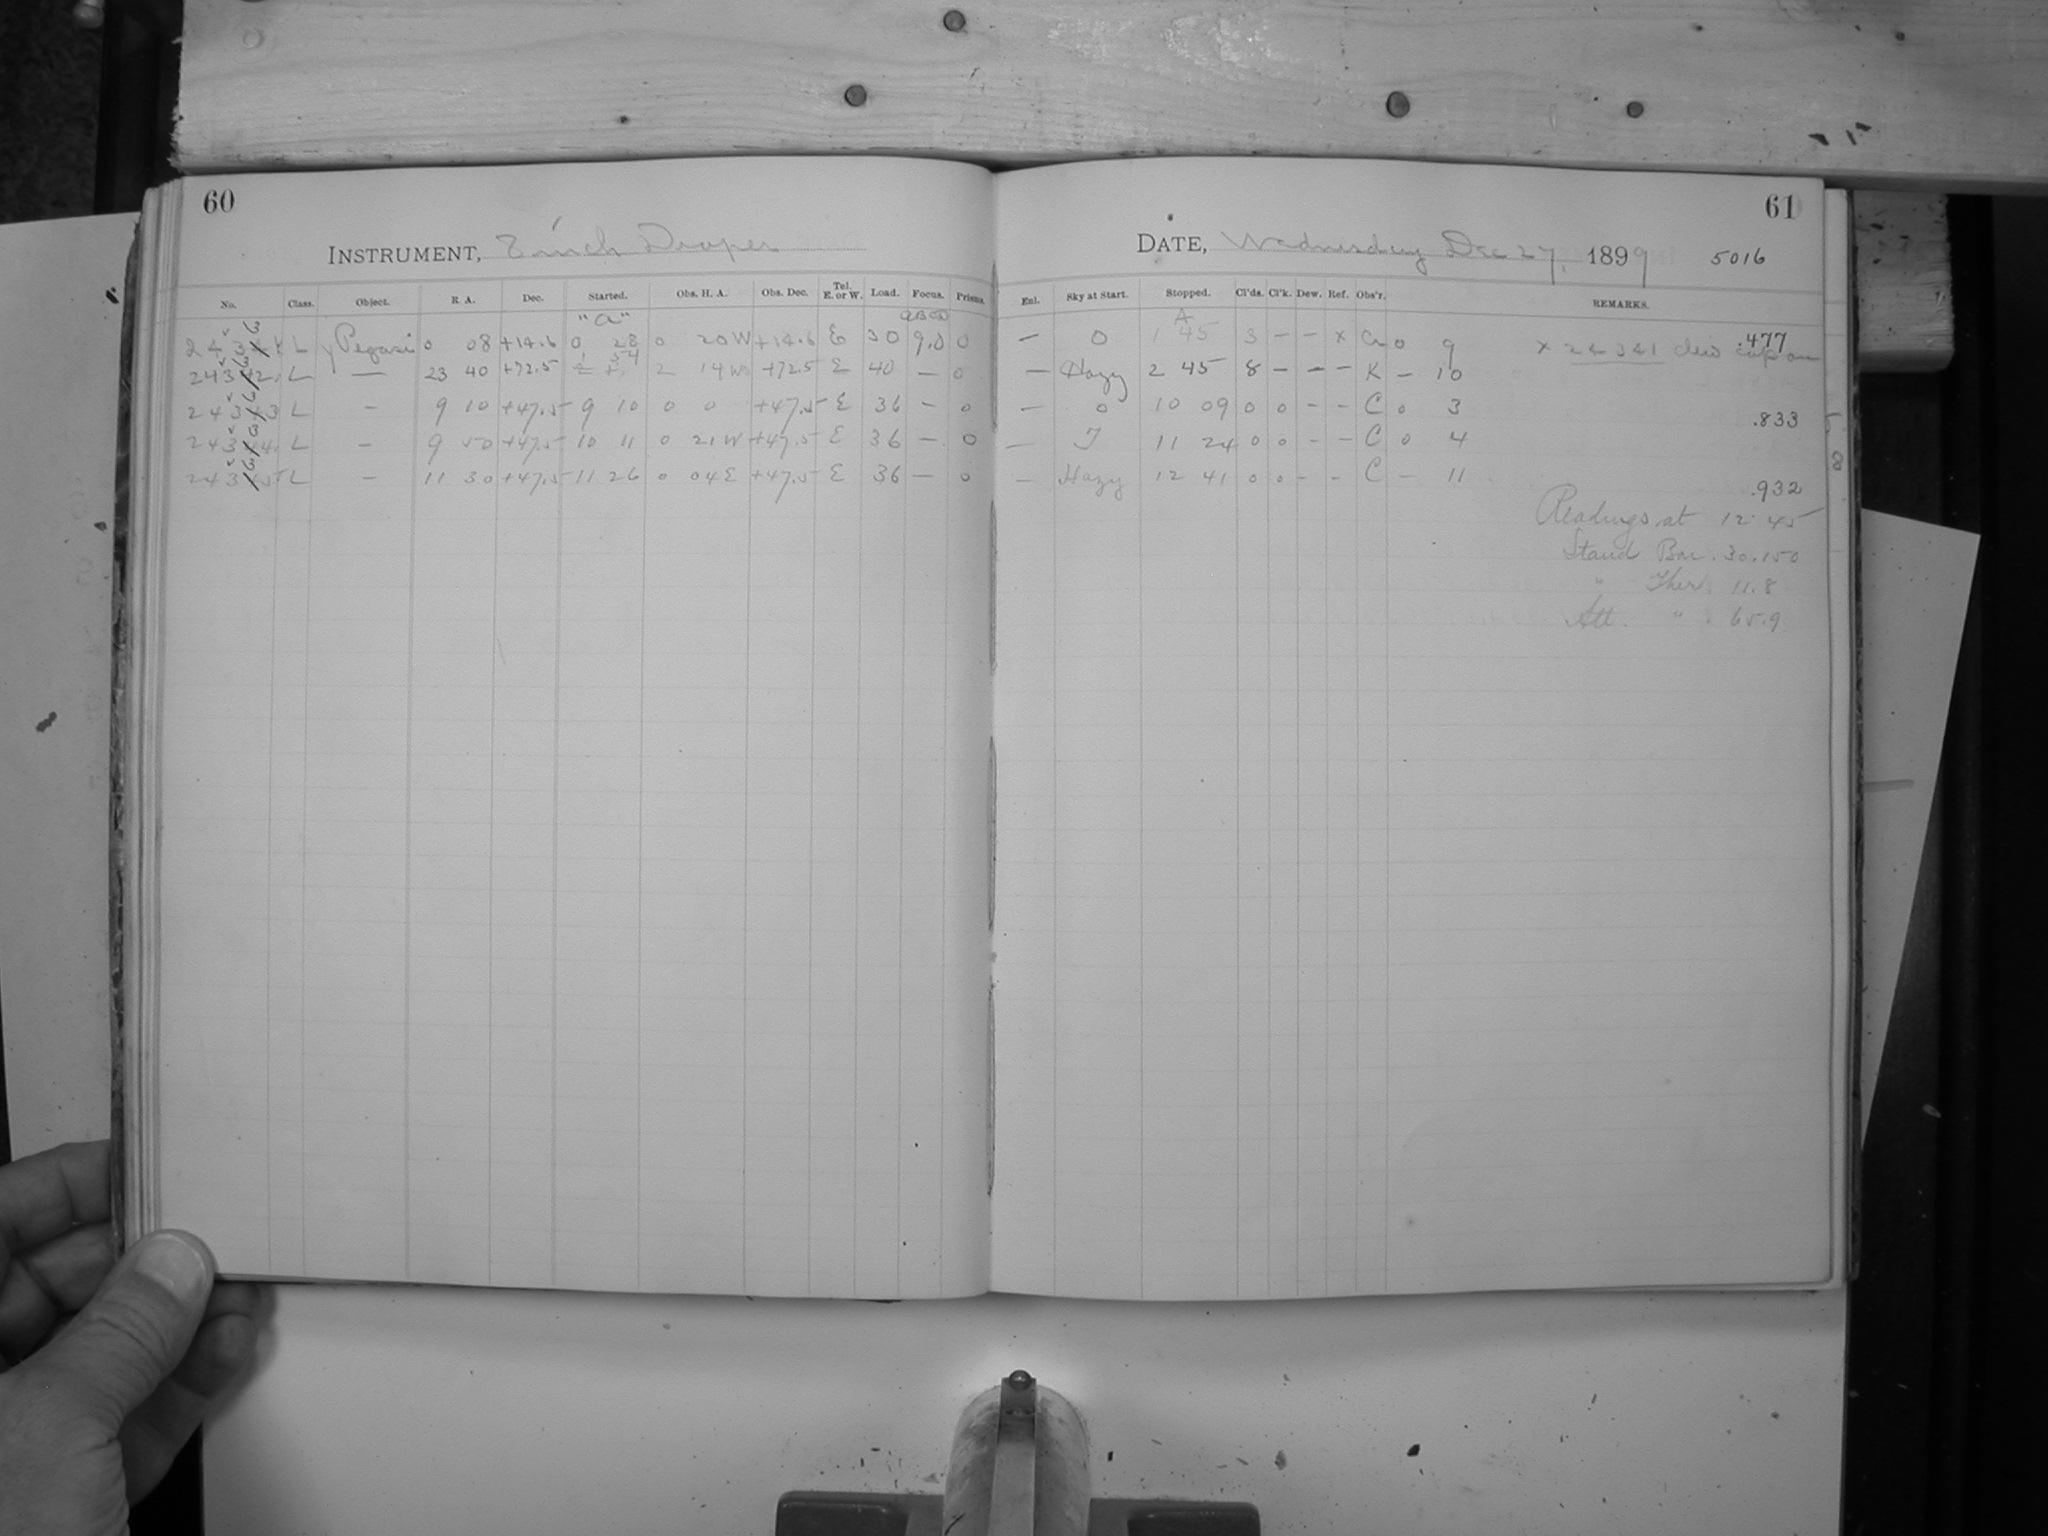 60
INSTRUMENT, 8 inch Draper
No. Class. Object. R. A. Dec. Started. Obs. H. A. Obs. Dec. Tel. E. or W. Load. Focus. Prisms.
"a"
L γ Pegasi 0 08 +14.6 0 28 0 20 W +14.6 E 30 9.0 0
L — 23 40 +72.5 1 54 2 14 W +72.5 E 40 — 0
L — 9 10 +47.5 9 10 0 0 +47.5 E 36 — 0
L — 9 50 +47.5 10 11 0 21 W +47.5 E 36 — 0
L — 11 30 +47.5 11 26 0 04 E +47.5 E 36 — 0
61
DATE, Wednesday Dec 27, 1899 5016
Enl. Sky at Start. Stopped. Cl'ds. Cl'k. Dew. Ref. Obs'r. REMARKS.
A
— 0 1 45 3 — — x 0 9 x 24341 dew cap on .477
— Hazy 2 45 8 — — — K — 10
— 0 10 09 0 0 — — C 0 3
.833
— 11 24 0 0 — — C 0 4
— Hazy 12 41 0 0 — — C — 11
.932
Readings at 12 45
Stand Bar. 30.150
" Ther. 11.8
Att. " 65.9